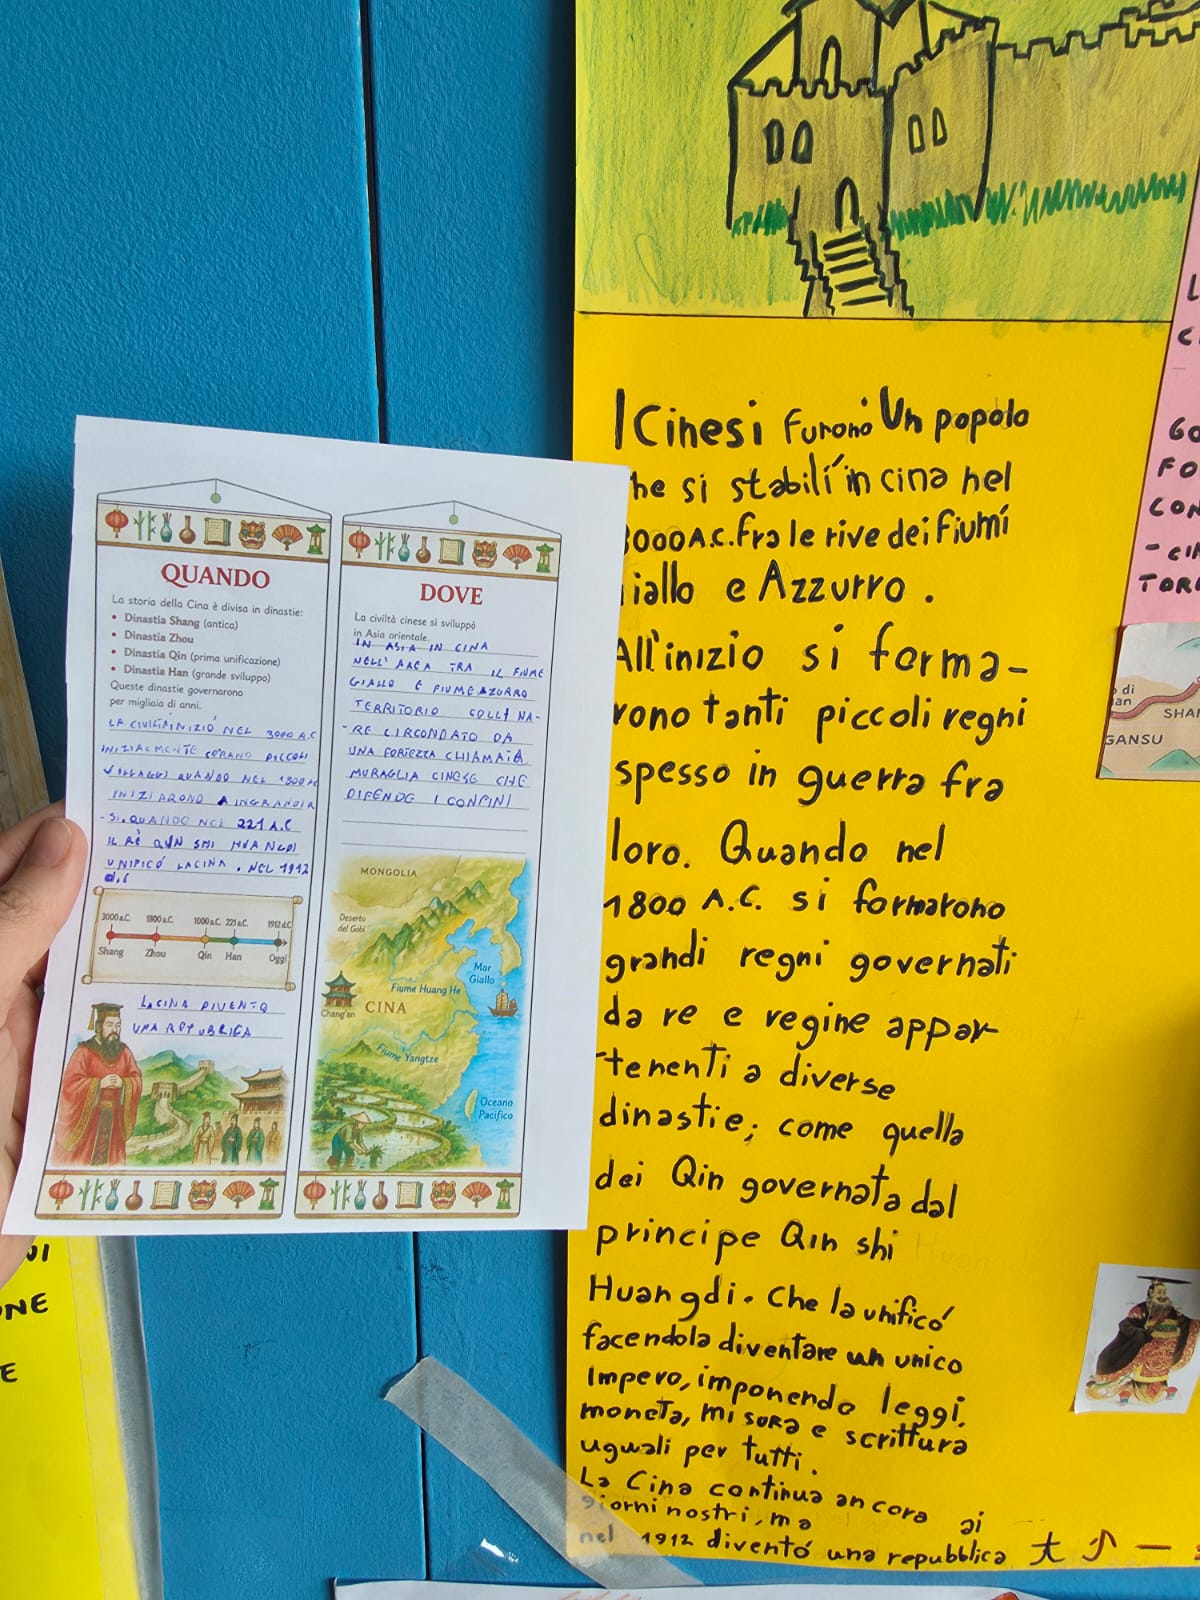 QUANDO
La storia della Cina è divisa in dinastie:
• Dinastia Shang (antica)
• Dinastia Zhou
• Dinastia Qin (prima unificazione)
• Dinastia Han (grande sviluppo)
Queste dinastie governarono
per migliaia di anni.
LA CIVILTÀ INIZIÓ NEL 3000 A.C
INIZIALMENTE C'ERANO PICCOLI
VILLAGGI QUANDO NEL 1800 A.C
INIZIARONO A INGRANDIR
-SI. QUANDO NEL 221 A.C
IL RÈ QIN SHI HUANGDI
UNIFICÓ LA CINA. NEL 1912
d.C
3000 a.C. 1800 a.C. 1000 a.C. 221 a.C. 1912 d.C.
Shang Zhou Qin Han Oggi
LA CINA DIVENTO
UNA REPUBBLICA
DOVE
La civiltà cinese si sviluppò
in Asia orientale.
IN ASIA IN CINA
NELL'AREA TRA IL FIUME
GIALLO E FIUME AZZURRO
TERRITORIO COLLINA-
-RE CIRCONDATO DA
UNA FORTEZZA CHIAMATA
MURAGLIA CINESE CHE
DIFENDE I CONFINI
MONGOLIA
Deserto
del Gobi
Mar
Giallo
Fiume Huang He
CINA
Chang'an
Fiume Yangtze
Oceano
Pacifico
I Cinesi Furono Un popolo
he si stabilí in cina nel
3000 A.C. Fra le rive dei Fiumi
iallo e Azzurro.
All'inizio si forma-
rono tanti piccoli regni
spesso in guerra fra
loro. Quando nel
1800 A.C. si formarono
grandi regni governati
da re e regine appar-
-tenenti a diverse
dinastie; come quella
dei Qin governata dal
principe Qin shi
Huangdi. Che la unificó
facendola diventare un unico
Impero, imponendo leggi,
moneta, misura e scrittura
uguali per tutti.
La Cina continua ancora ai
giorni nostri, ma
nel 1912 diventó una repubblica 大
GO
FO
CON
- CI
TOR
di
an
SHA
GANSU
NI
ONE
E